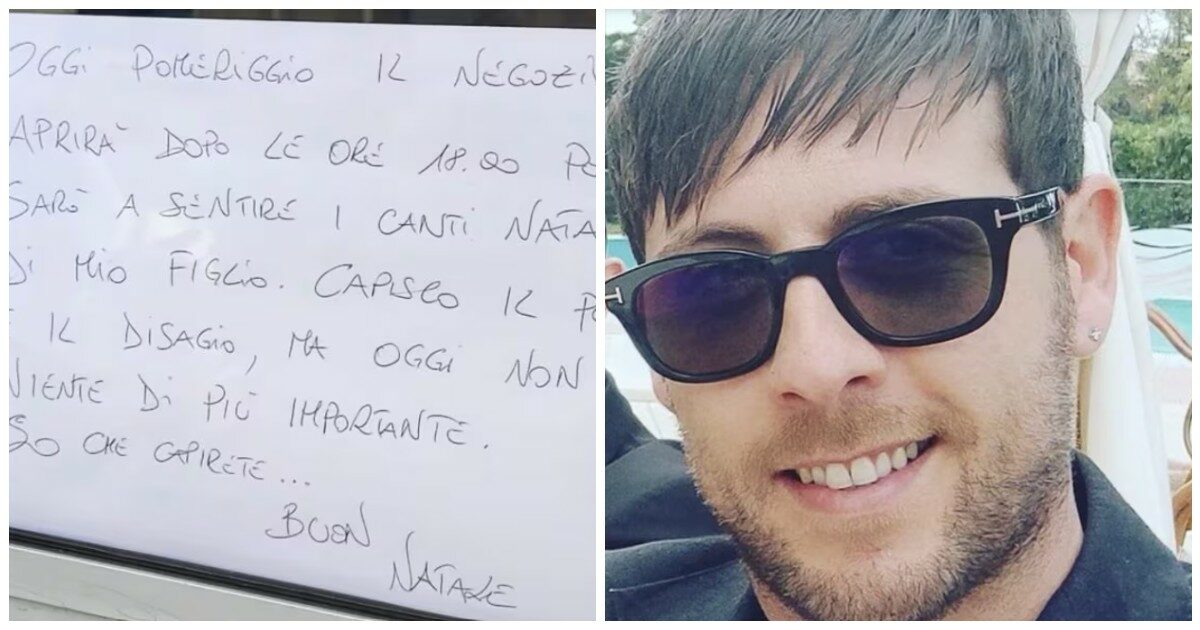 OGGI POMERIGGIO IL NEGOZI
APRIRÀ DOPO LE ORE 18.00
SARÒ A SENTIRE I CANTI NATA
DI MIO FIGLIO. CAPISCO IL
IL DISAGIO, MA OGGI NON
NIENTE DI PIÙ IMPORTANTE.
SO CHE CAPIRETE...
BUON
NATALE